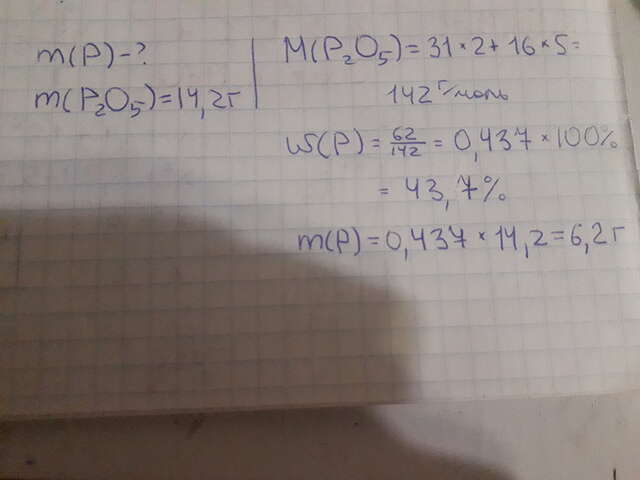 m(P)-?
m(P₂O₅)=14,2г
M(P₂O₅)=31×2+16×5=
142 г/моль
ω(P)=62/142=0,437×100%
=43,7%
m(P)=0,437×14,2=6,2г